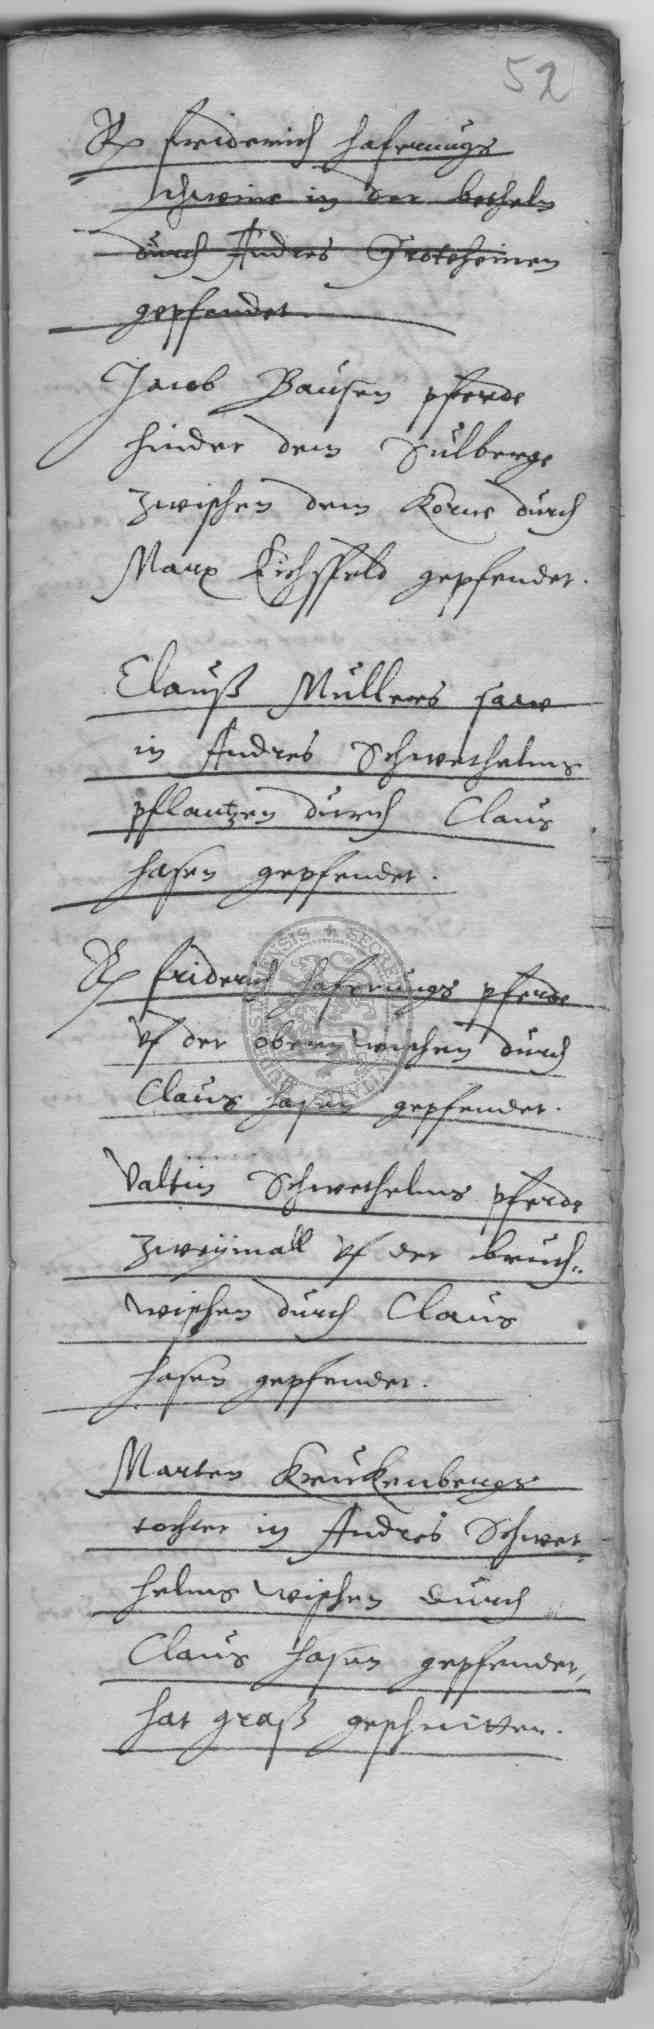 52
Friderich Hafernngs
schweine in der betheln
durch Andres Groteheinen
gepfendet.
Jacob Bausen pferde
hinder dem Sülberge
zwischen dem Korne durch
Marx Eichsfeld gepfendet.
Clauß Müllers saw
in Andres Schwethelms
pflantzen durch Claus
hasen gepfendet.
friderich Hafernngs pferde
vf der obern wischen durch
Claus hasen gepfendet.
Valtin Schwethelms pferde
zweymall vf der bruch=
wischen durch Claus
hasen gepfendet.
Marten Kruckenbergs
tochter in Andres Schwet=
helms wischen durch
Claus hasen gepfendet,
hat graß geschnitten.